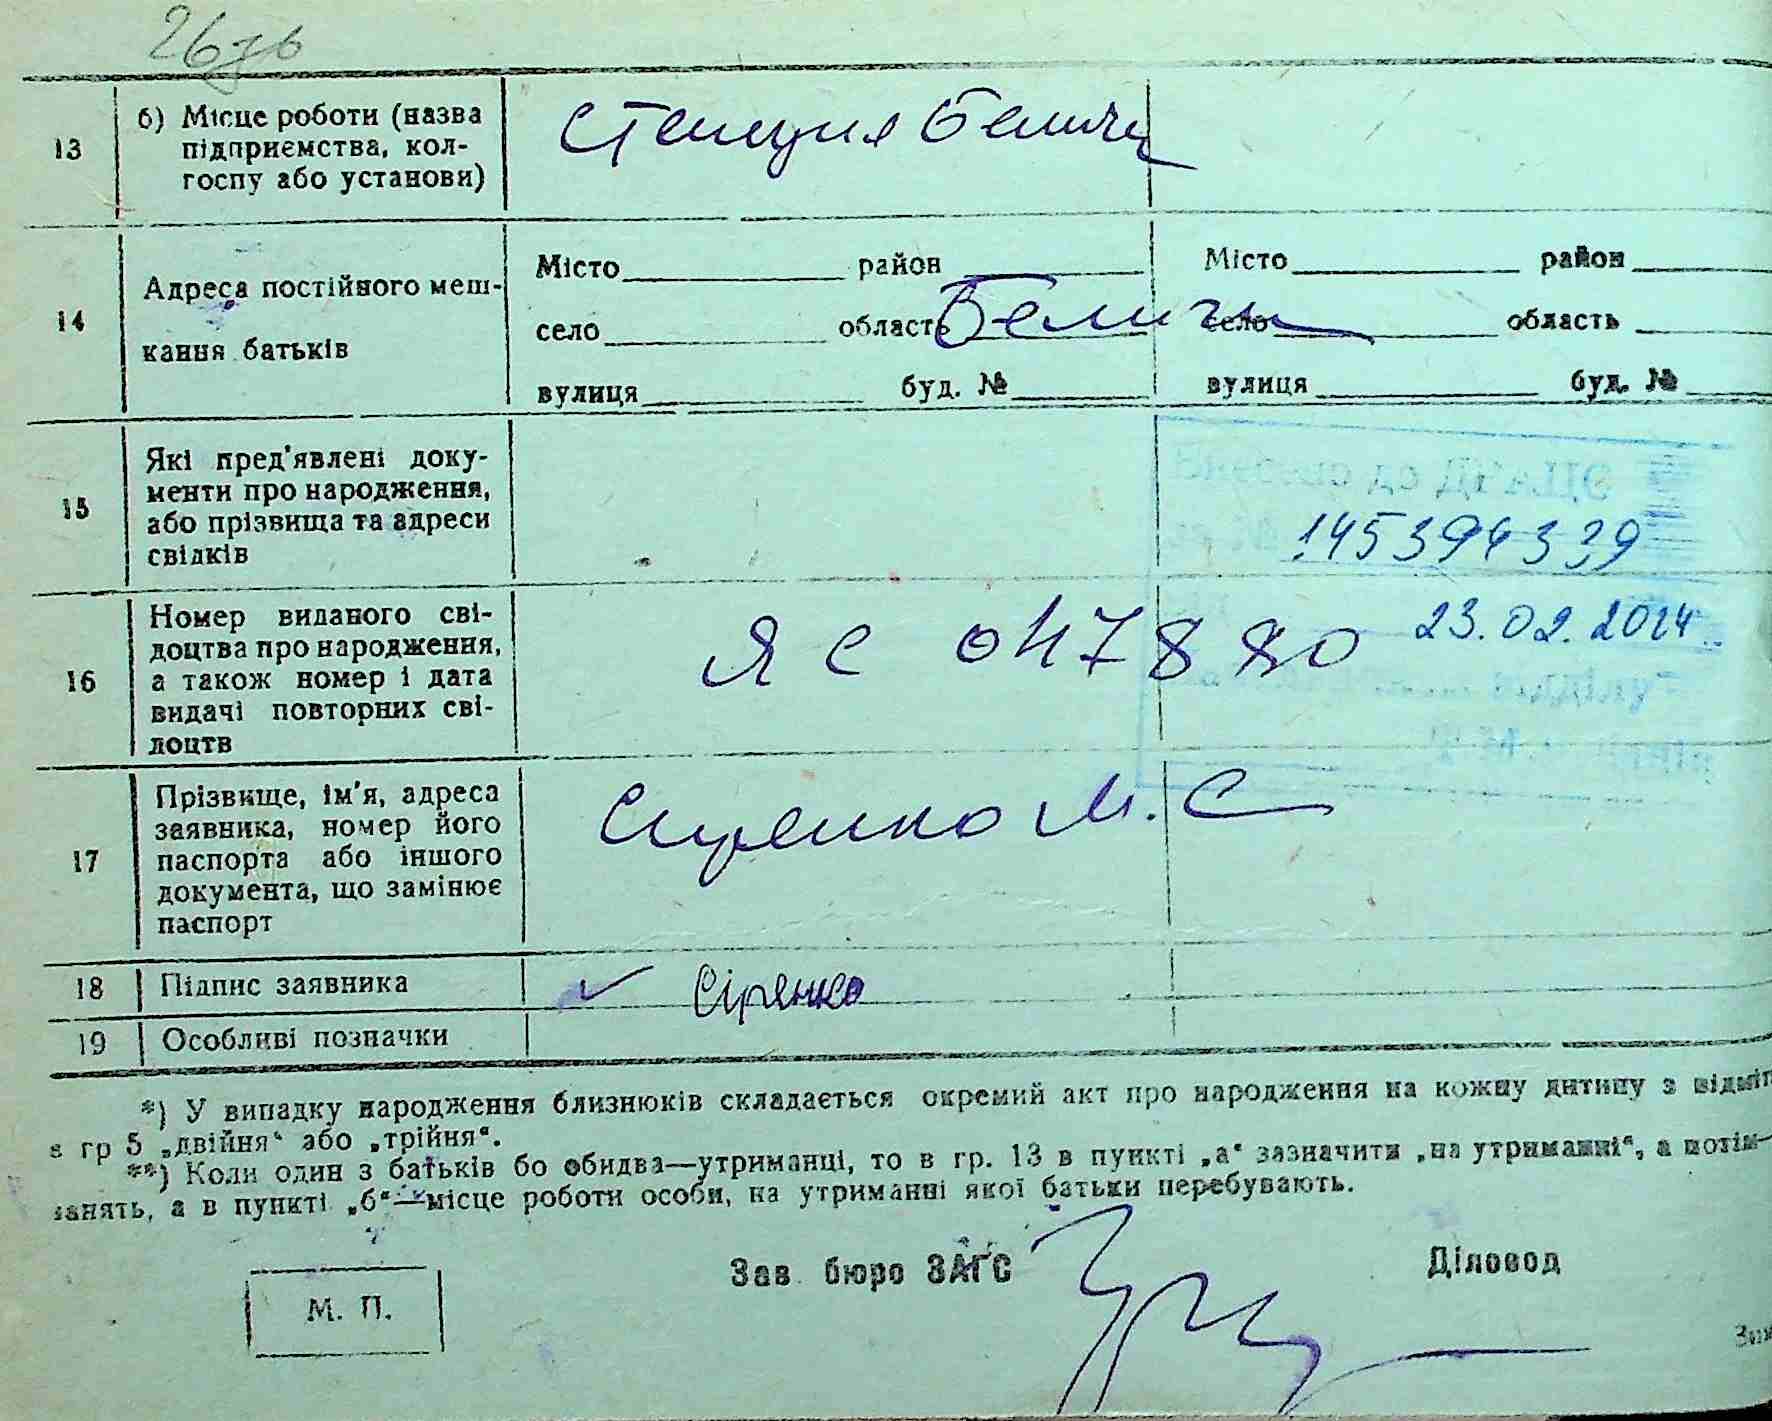 13
б) Місце роботи (назва
підприємства, кол-
госпу або установи)
станция Беличи
14
Адреса постійного меш-
кання батьків
Місто район
село область
вулиця буд. №
Беличи
Місто район
село область
вулиця буд. №
15
Які пред'явлені доку-
менти про народження,
або прізвища та адреси
свідків
145394339
16
Номер виданого сві-
доцтва про народження,
а також номер і дата
видачі повторних сві-
доцтв
ЯС 047880
23.02.2024
17
Прізвище, ім'я, адреса
заявника, номер його
паспорта або іншого
документа, що замінює
паспорт
Сиренко М. С
18
Підпис заявника
Сіренко
19
Особливі позначки
*) У випадку народження близнюків складається окремий акт про народження на кожну дитину з
в гр 5 „двійня“ або „трійня“.
**) Коли один з батьків бо обидва—утриманці, то в гр. 13 в пункті „а“ зазначити „на утриманні“, а потім—
занять, а в пункті „б“—місце роботи особи, на утриманні якої батьки перебувають.
Зав. бюро ЗАГС
Діловод
М. П.